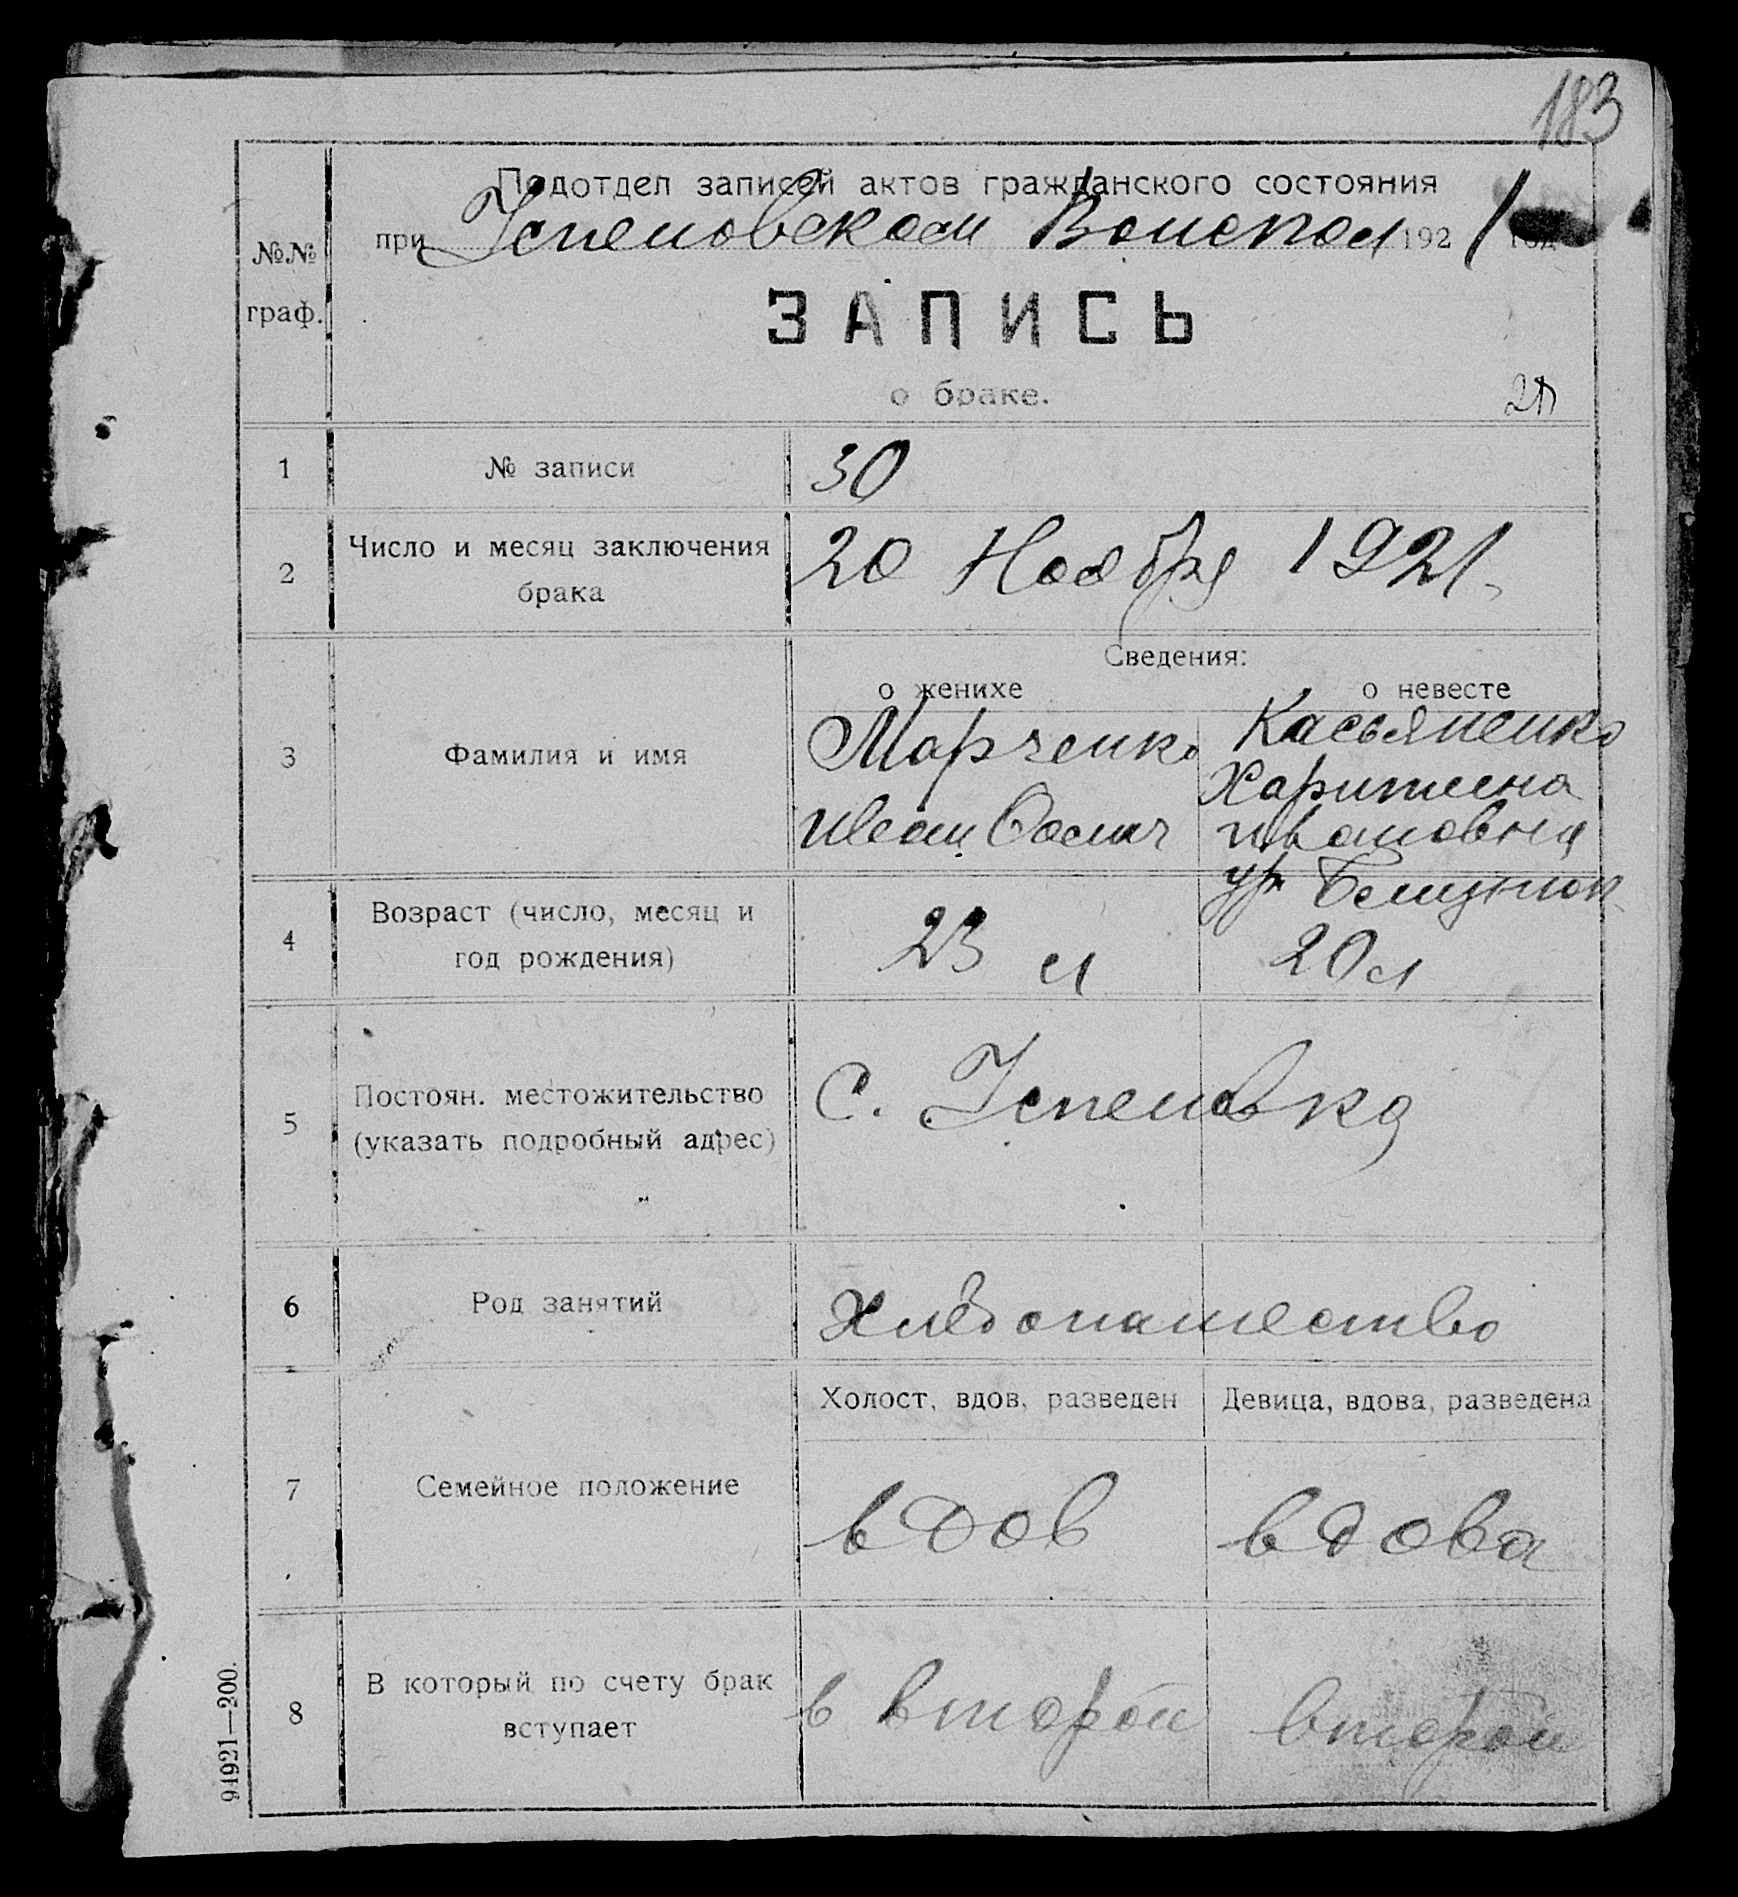 183
Подотдел записей актов гражданского состояния
при Успеновском Волиспол 1921 год
№№ граф.
ЗАПИСЬ
о браке.
1 № записи 30
2 Число и месяц заключения брака 20 Ноября 1921
Сведения:
о женихе о невесте
3 Фамилия и имя
Марченко Касьяненко
Харитина
Иван Ивановна
ур
4 Возраст (число, месяц и год рождения) 23 л 20 л
5 Постоян. местожительство (указать подробный адрес) С. Успеновка
6 Род занятий Хлебопашество
Холост, вдов, разведен Девица, вдова, разведена
7 Семейное положение вдов вдова
8 В который по счету брак вступает в второй второй
94921—200.